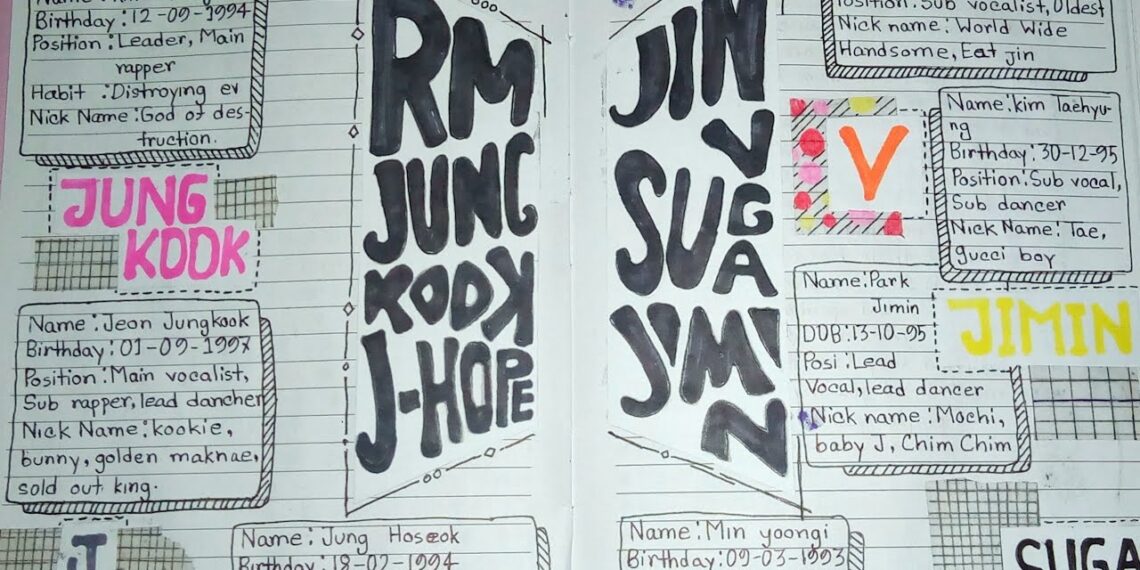 Birthday:12-09-1994
Position:Leader, Main
rapper
Habit :Distroying ev
Nick Name:God of des-
truction.
JUNG
KOOK
Name:Jeon Jungkook
Birthday:01-09-1997
Position:Main vocalist,
Sub rapper, lead dancher
Nick Name:kookie,
bunny, golden maknae,
sold out king.
J
Name:Jung Hoseok
Birthday:18-02-1994
RM
JUNG
KOOK
J-HOPE
JIN
V
SUGA
JIMIN
Position:Sub vocalist, Oldest
Nick name:World Wide
Handsome, Eat jin
V
Name:kim Taehyu-
ng
Birthday:30-12-95
Position:Sub vocal,
Sub dancer
Nick Name:Tae,
gucci boy
Name:Park
Jimin
DOB:13-10-95
Posi:Lead
Vocal, lead dancer
Nick name:Mochi,
baby J, Chim Chim
JIMIN
Name:Min yoongi
Birthday:09-03-1993
SUGA